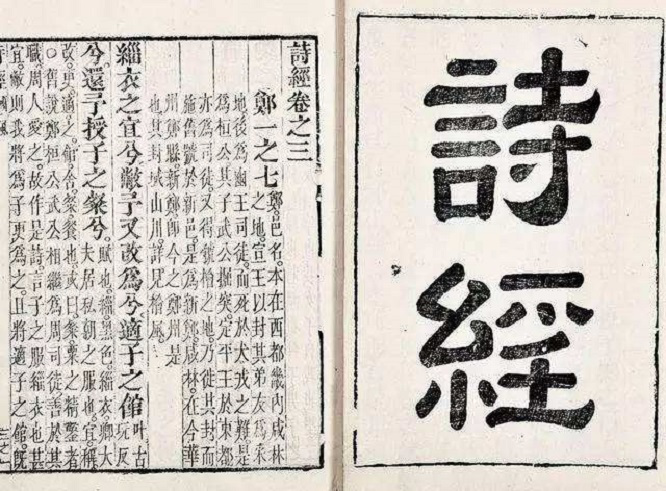 詩經
詩經卷之三
鄭一之七 鄭。邑名。本在西都畿內咸林
之地。宣王以封其弟友為采
地後為幽王司徒。而死於犬戎之難。是
為桓公。其子武公掘突。定平王於東都
亦為司徒。又得虢檜之地。乃徙其封。而
施舊號於新邑。是為新鄭。咸林。在今華
州鄭縣。新鄭。即今之鄭州。是
也。其封域山川。詳見檜風。
緇衣之宜兮。敝予又改為兮。適子之館 叶古
玩反
兮。還予授子之粲兮。 賦也。緇黑色。緇衣。卿大
夫居私朝之服也。宜。稱
改。更。適。之。館。舍。粲。餐也。或曰。粲。粟之精鑿者
○舊說鄭桓公武公。相繼為周司徒。善於其
職。周人愛之。故作是詩。言子之服緇衣也。甚
宜。敝則我將為子更為之。且將適子之館。既